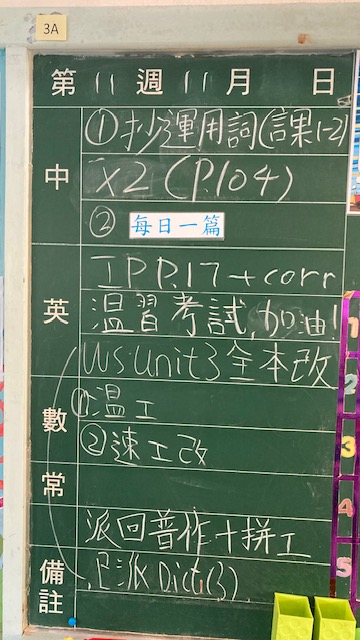 3A
第 11 週 11 月 日
中
①抄運用詞(課1-2)
x2 (P.104)
② 每日一篇
英
IP P.17 + corr
温習考試,加油!
WS: Unit3 全本改
數
①温工
②速工改
常
備註
派回普作+拼工
已派 Dict(3)
1
2
3
4
5